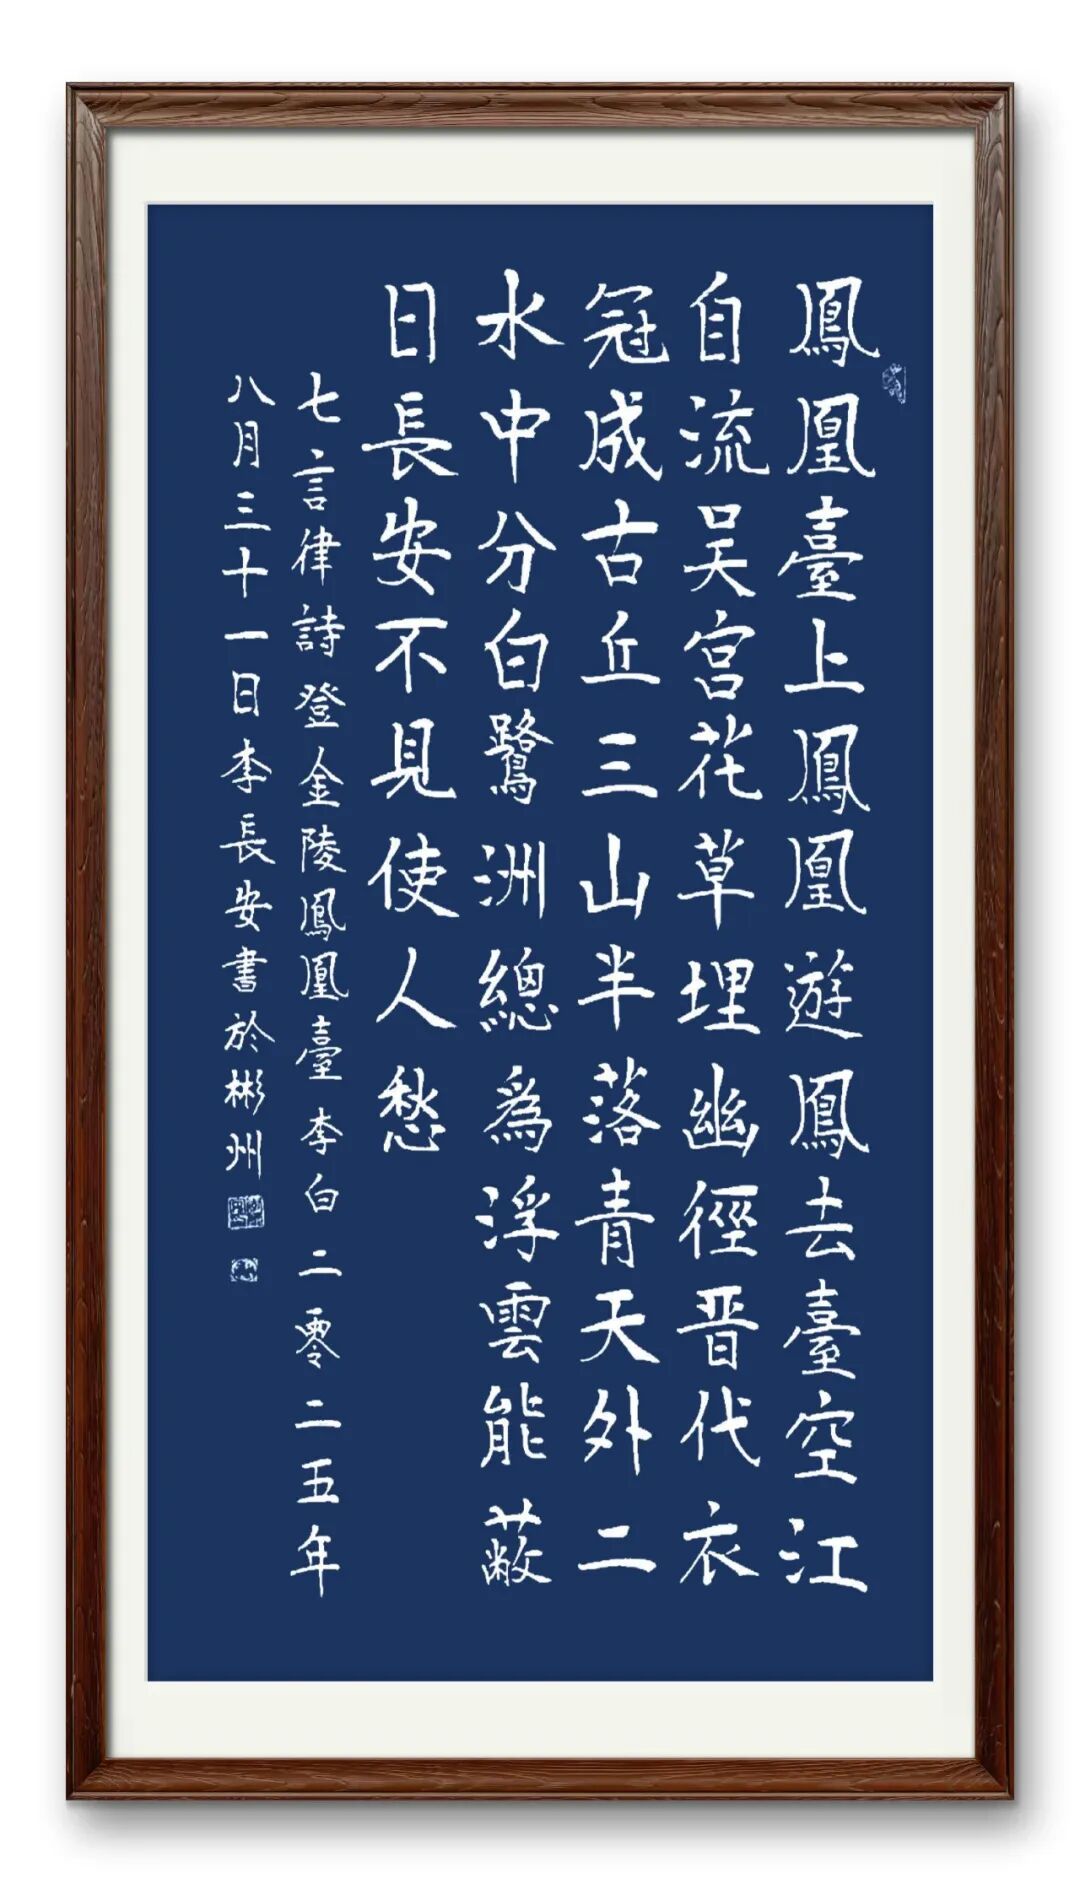 鳳凰臺上鳳凰遊鳳去臺空江
自流吴宫花草埋幽徑晋代衣
冠成古丘三山半落青天外二
水中分白鷺洲總為浮雲能蔽
日長安不見使人愁
七言律詩登金陵鳳凰臺李白二零二五年
八月三十一日李長安書於彬州